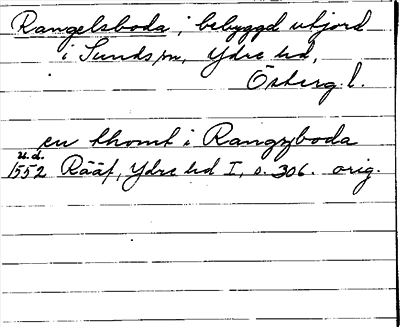 Rangelsboda; bebyggd utjord
i Sunds sn, Ydre hd,
Österg. l.
en thomt i Rangzboda
u. d.
1552 Rääf, Ydre hd I, s. 306. orig.